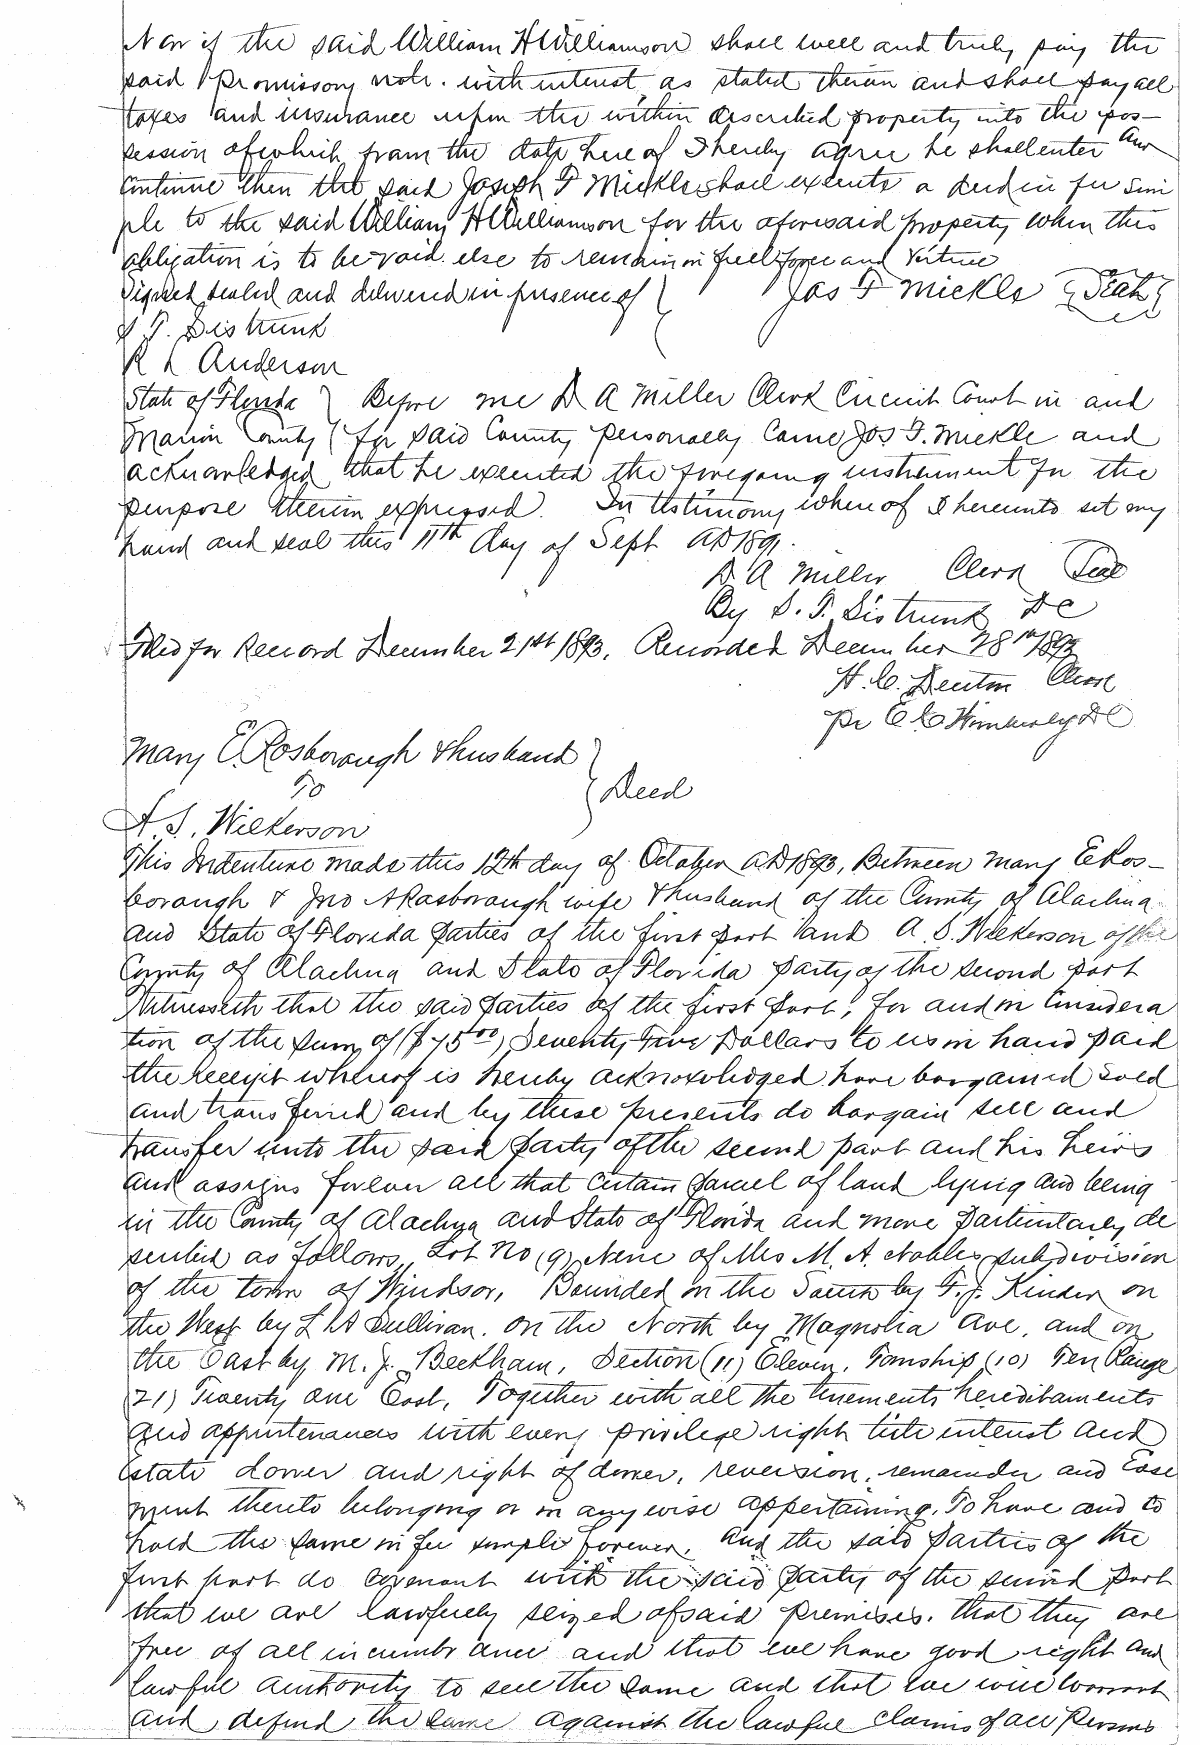 Now if the said William H Williamson shall well and truly pay the
said Promissory note. with interest as stated therein and shall pay all
taxes and insurance upon the within described property into the pos-
session of which from the date here of I hereby agree he shall enter and
Continue then the said Joseph F Mickle shall execute a deed in fee Sim
ple to the said William H Williamson for the aforesaid property When this
obligation is to be void. else to remain in full force and Virtue
Signed sealed and delivered in presence of } Jos F Mickle {Seal}
S. T. Sistrunk
R L Anderson
State of Florida } Before me D A Miller Clerk Circuit Court in and
Marion County { for said County personally Came Jos F. Mickle and
acknowledged that he executed the foregoing instrument for the
purpose therein expressed. In testimony where of I hereunto set my
hand and seal this 11th day of Sept AD 1891.
D. A Miller Clerk Seal
By S. T. Sistrunk DC
Filed for Record December 21st 1893, Recorded December 28th 1893
H. C. Denton Clerk
pr E C Wimberly DC
Mary E. Rosborough & husband }
To } Deed
A. S. Wilkerson
This Indenture made this 12th day of October AD 1893, Between Mary E Ros-
borough & Jno A Rosborough wife & husband of the County of Alachua
and State of Florida parties of the first part and A. S. Wilkerson of the
County of Alachua and State of Florida party of the second part
Witnesseth that the said parties of the first part, for and in Considera
tion of the sum of ($75 00) Seventy Five Dollars to us in hand paid
the receipt whereof is hereby acknowledged have bargained sold
and transferred and by these presents do bargain sell and
transfer unto the said party of the second part and his heirs
and assigns forever all that certain parcel of land lying and being
in the County of Alachua and State of Florida and more particularly de
scribed as follows, Lot No (9) Nine of Mrs M. A. Nobles subdivision
of the town of Windsor, Bounded on the South by F. J. Kinder on
the West by L A Sullivan. on the North by Magnolia Ave, and on
the East by M. J. Beckham, Section (11) Eleven, Township (10) Ten Range
(21) Twenty one East, Together with all the tenements hereditaments
and appurtenances with every privilege right title interest and
Estate dower and right of dower, reversion, remainder and Ease
ment thereto belonging or in anywise appertaining. To have and to
hold the same in fee simple forever. And the said parties of the
first part do covenant with the said party of the second part
that we are lawfully seized of said premises. that they are
free of all incumbrance and that we have good right and
lawful authority to sell the same and that we will warrant
and defend the same against the lawful claims of all Persons